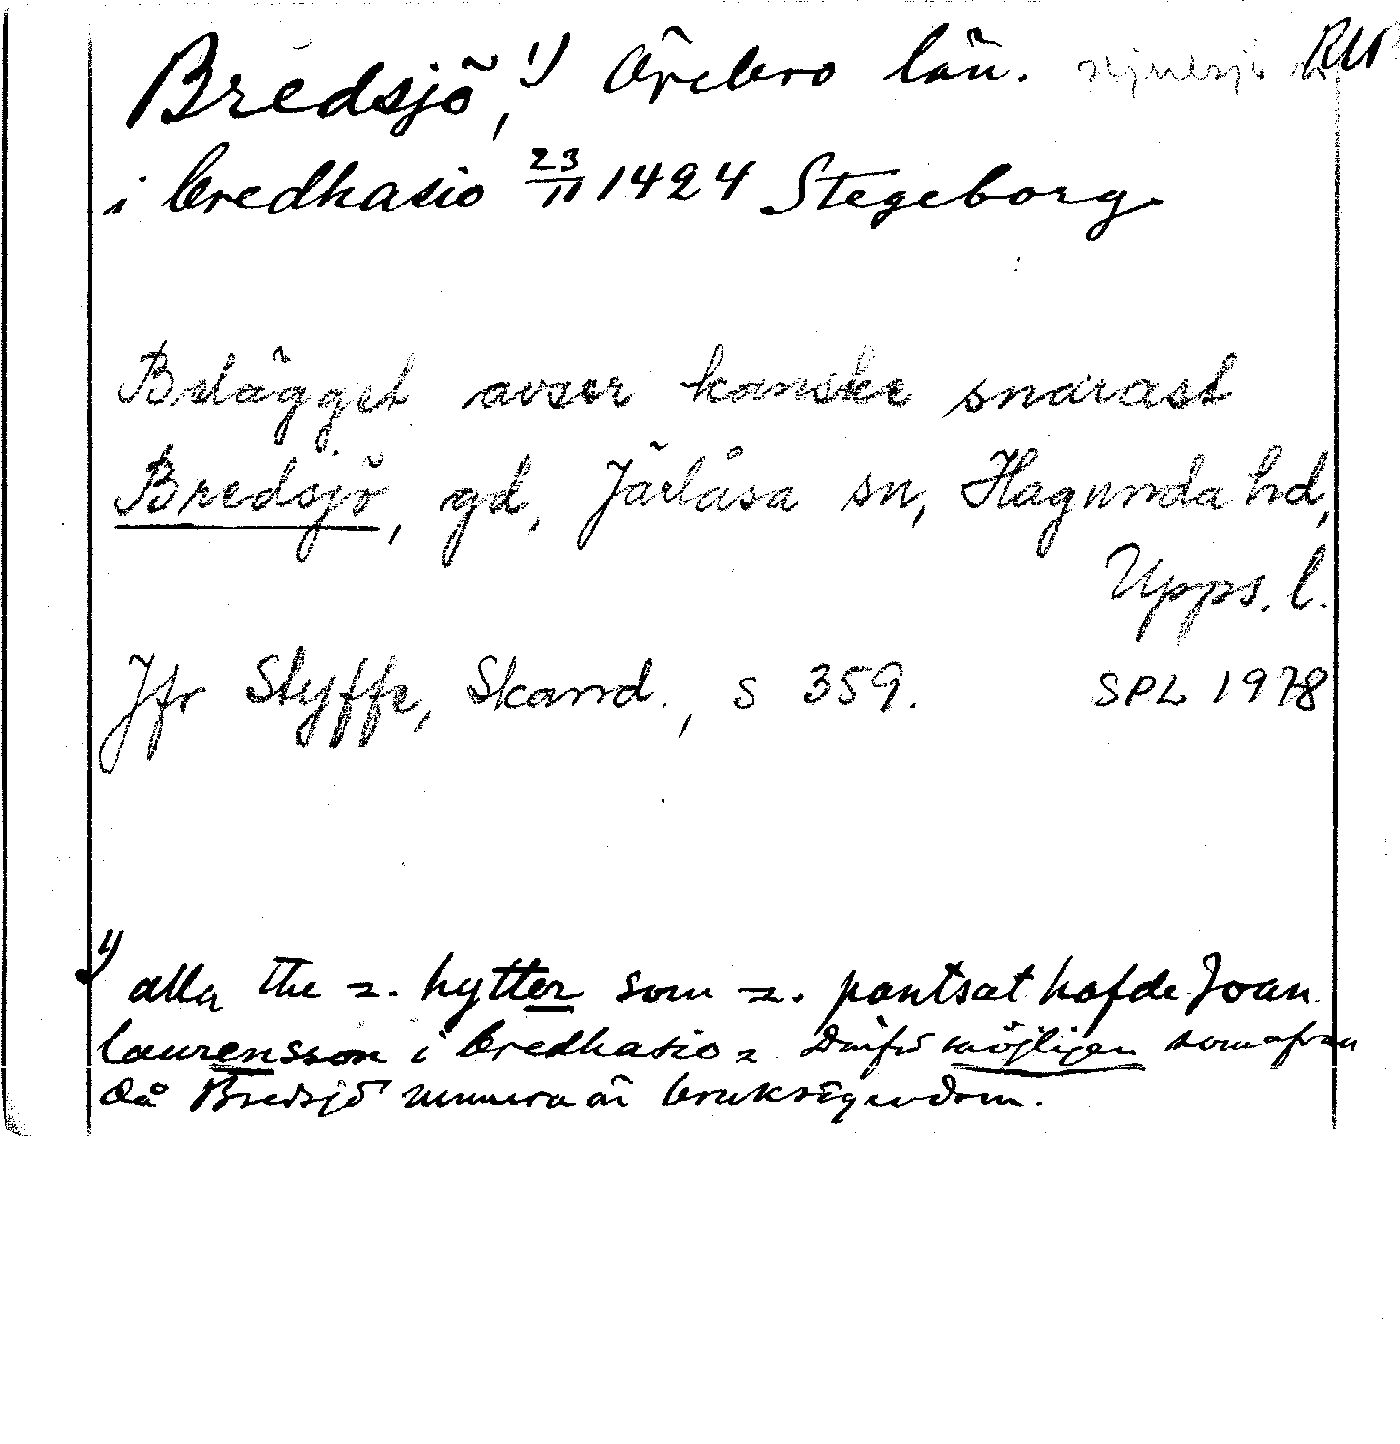 Bredsjö,¹⁾ Örebro län. RAP
i bredhasio 23/11 1424 Stegeborg.
Belägget avser kanske snarast
Bredsjö, gd, Järlåsa sn, Hagunda hd,
Upps. l.
Jfr Styffe, Skand., s 359. SPL 1978
1) alla the =. hytter som =. pantsat hafde Joan
laurensson i bredhasio = möjligen
då Bredsjö numera är bruksegendom.